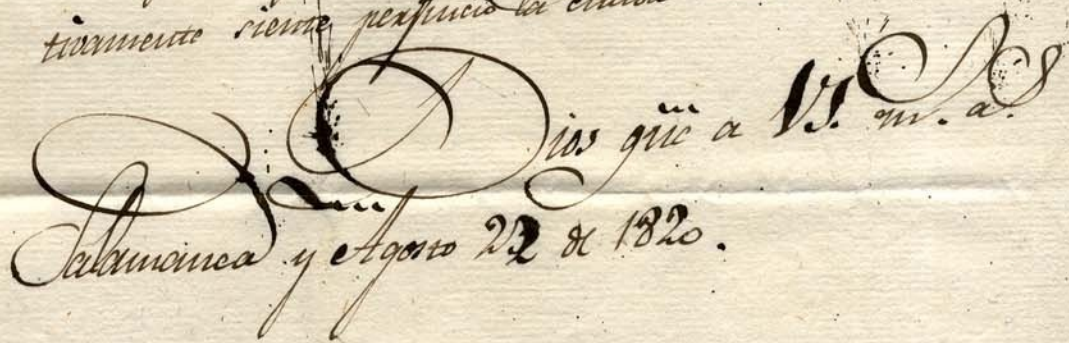 tivamente siente perjuicio la
Dios gūe a V.S. m.s a.s
Salamanca y Agosto 22 de 1820.